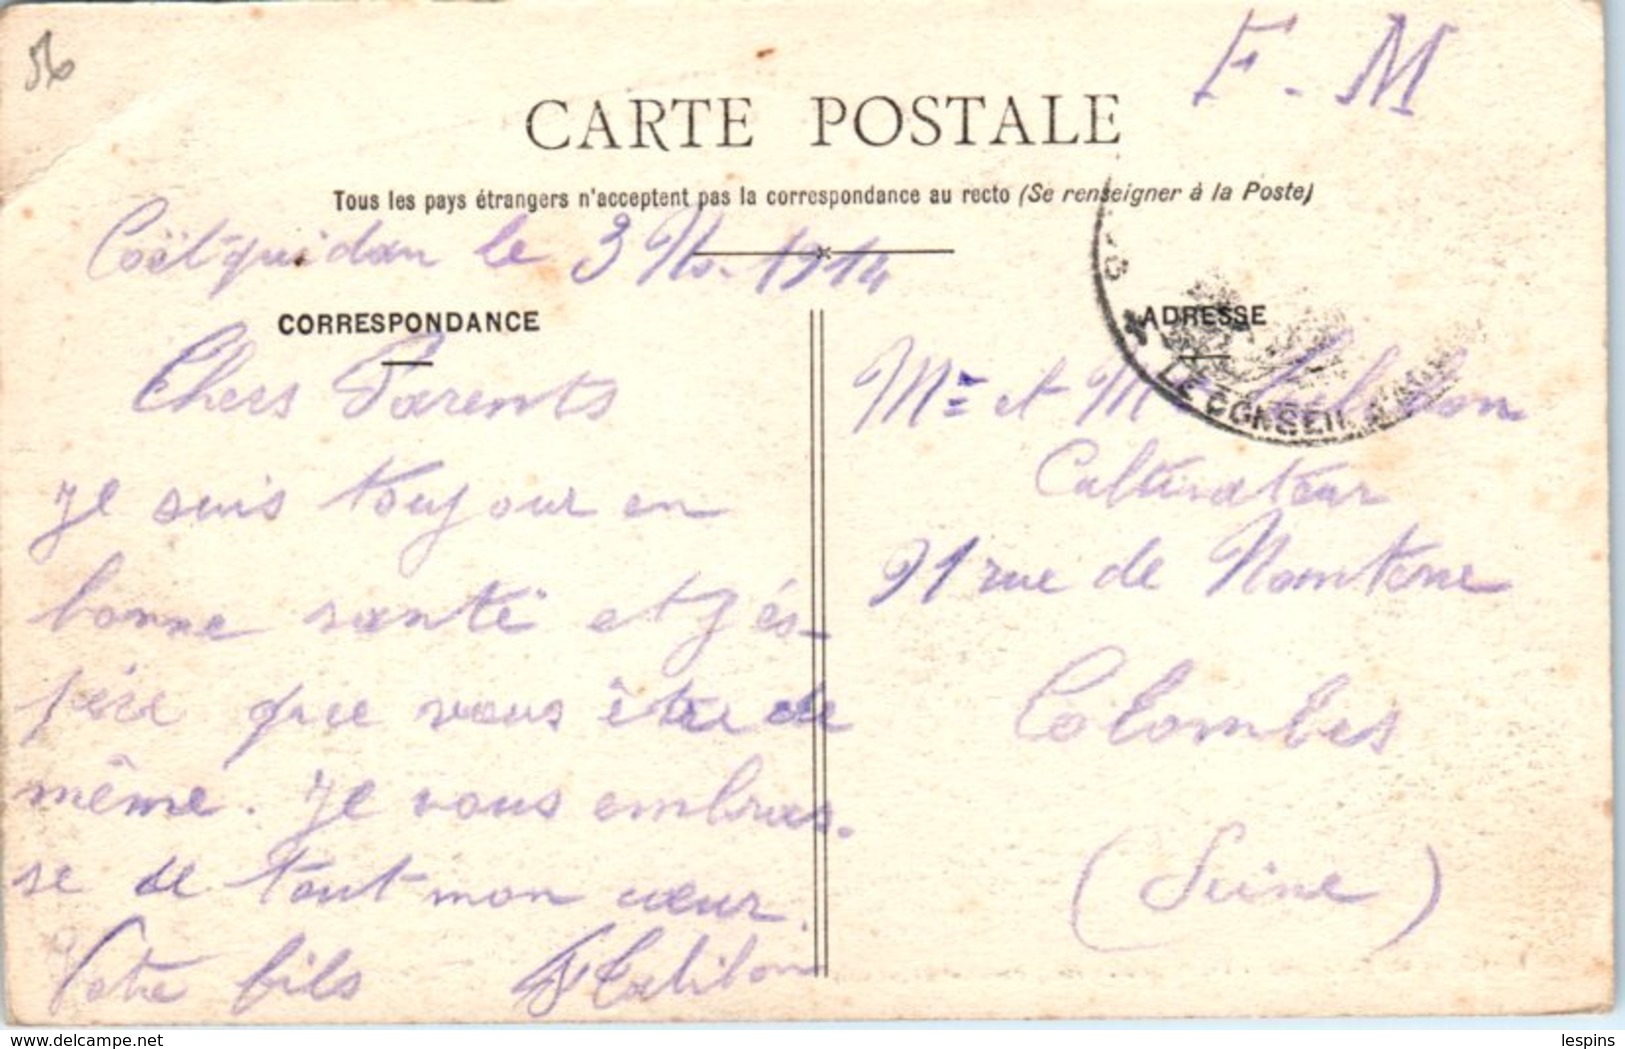 56
F. M
CARTE POSTALE
Tous les pays étrangers n'acceptent pas la correspondance au recto (Se renseigner à la Poste)
Coëtquidan le 3 No. 1914
CORRESPONDANCE
Chers Parents
Je suis toujour en
bonne santé et j'és-
père que vous ête de
même. Je vous embras-
se de tout mon cœur.
Votre fils
ADRESSE
LE CONSEIL D'
Mr et M
Cultivateur
91 rue de Nanterre
Colombes
(Seine)
www.delcampe.net
lespins